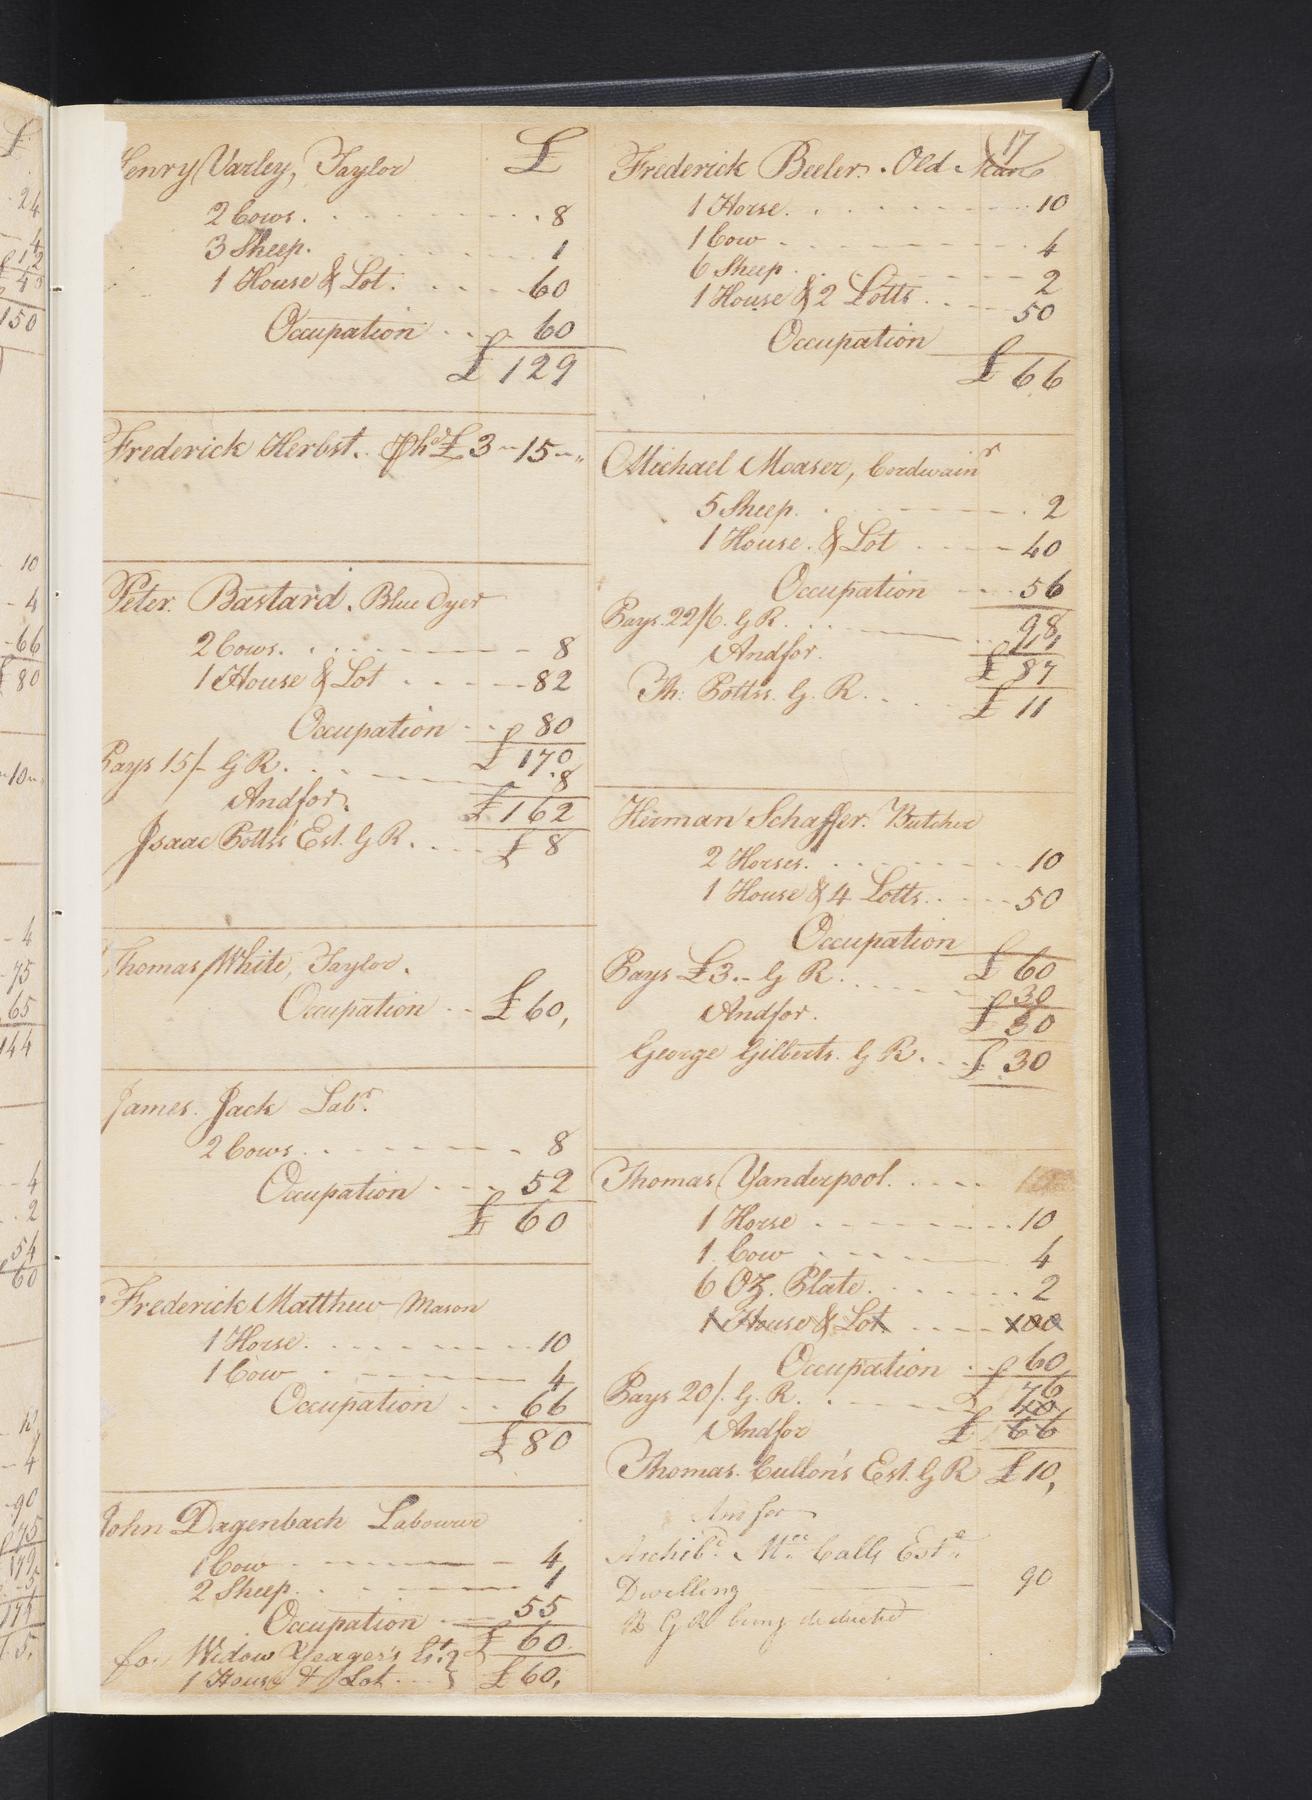 Henry Varley, Taylor £
2 Cows 8
3 Sheep 1
1 House & Lot 60
Occupation 60
£ 129
Frederick Herbst. Phd £ 3 " 15 "
Peter Bastard. Blue Dyer
2 Cows 8
1 House & Lot 82
Occupation 80
£ 170
Pays 15/- G R. 8
Andfor. £ 162
Isaac Potts's Est. G R. £ 8
Thomas White, Taylor.
Occupation £ 60,
James Jack Labr.
2 Cows 8
Occupation 52
£ 60
Frederick Matthew Mason
1 Horse 10
1 Cow 4
Occupation 66
£ 80
John Dagenbach Labourer
1 Cow 4
2 Sheep 1
Occupation 55
£ 60
for Widow Yeager's Est.
1 House & Lot £ 60,
17
Frederick Beeler. Old Man
1 Horse 10
1 Cow 4
6 Sheep 2
1 House & 2 Lotts 50
Occupation
£ 66
Michael Moaser, Cordwainr
5 Sheep 2
1 House & Lot 40
Occupation 56
98
Pays 22/6. G R. 11
Andfor. £ 87
Th: Potts's G. R. £ 11
Herman Schaffer. Butcher
2 Horses 10
1 House & 4 Lotts 50
Occupation
£ 60
Pays £3.- G R. 30
Andfor. £ 30
George Gilberts. G R. £ 30
Thomas Vanderpool.
1 Horse 10
1 Cow 4
6 Oz. Plate 2
1 House & Lot 100
Occupation 60
£ 76
Pays 20/. G. R. 10
Andfor £ 66
Thomas Cullon's Est. G R £ 10,
An for
Archibd. Mcc Calls Este.
Dwelling 90
G R being deducted
24
4
12
40
150
10
4
66
£ 80
10
4
75
65
144
4
2
54
60
4
90
75
179
5
174
5